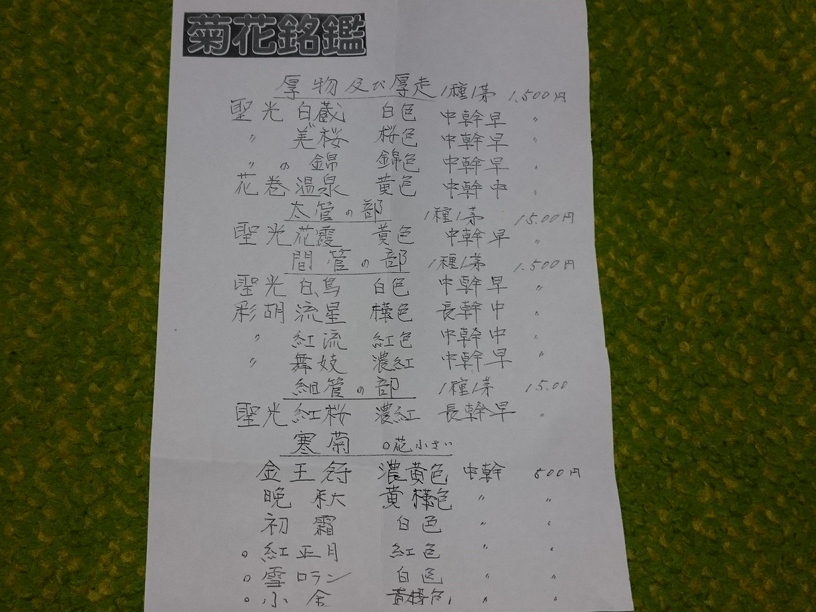 菊花銘鑑
厚物及び厚走 1種1芽 1,500円
聖光白蔵 白色 中幹早 〃
〃 美桜 桜色 中幹早 〃
〃 の錦 錦色 中幹早 〃
花巻温泉 黄色 中幹中 〃
太管の部 1種1芽 15.00円
聖光花霞 黄色 中幹早 〃
間管の部 1種1芽 1.500円
聖光白鳥 白色 中幹早 〃
彩胡流星 樺色 長幹中 〃
〃 紅流 紅色 中幹中 〃
〃 舞妓 濃紅 中幹早 〃
細管の部 1種1芽 15.00
聖光紅桜 濃紅 長幹早 〃
寒菊 ○花小さい
金王冠 濃黄色 中幹 500円
晩秋 黄樺色 〃 〃
初霜 白色 〃 〃
○紅正月 紅色 〃 〃
○雪ロラン 白色 〃 〃
○小金 黄樺色 〃 〃